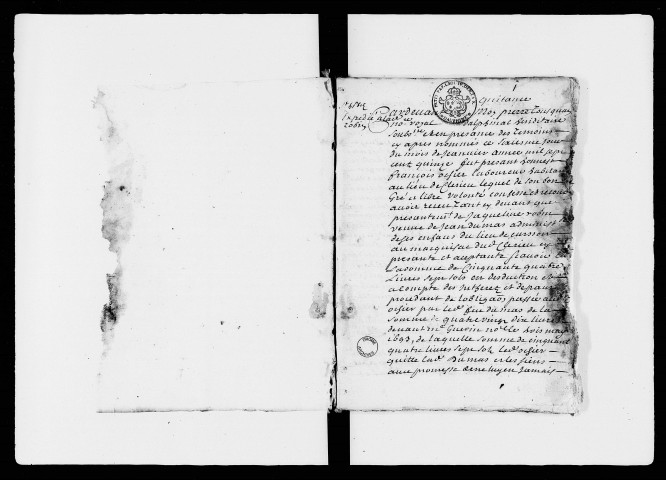 1
quitance
Pardevant Moy pierre
no.re Royal delphinal hereditaire
soub.né et en presance des temoins
cy apres nommés ce saisieme jour
du mois de Jeanvier année mil sept
cent quinze fut presant honneste
françois osier laboureur habitant
au lieu de Clerieu lequel de son bon
Gré et libre volonté confesse et reconnoit
avoir receu tant cy devant que
presantem.t de Jaqueline
veuve de Jean dumas
de ses enfans du lieu de
au marquisat dud. Clerieu cy
presante et aceptante scavoir est
la somme de Cinquante quatre
Livres sept sols en deduction et
a compte des interez et de
procedant de lobliga.on passée aud.
osier par led. feu dumas de la
somme de quatre vingt dix livres
devant m.e Guerin no.re le trois may
1693, de laquelle somme de cinquante
quatre livres sept sols led. osier
quitte lad. Dumas et les siens
avec promesse de ne luy en jamais